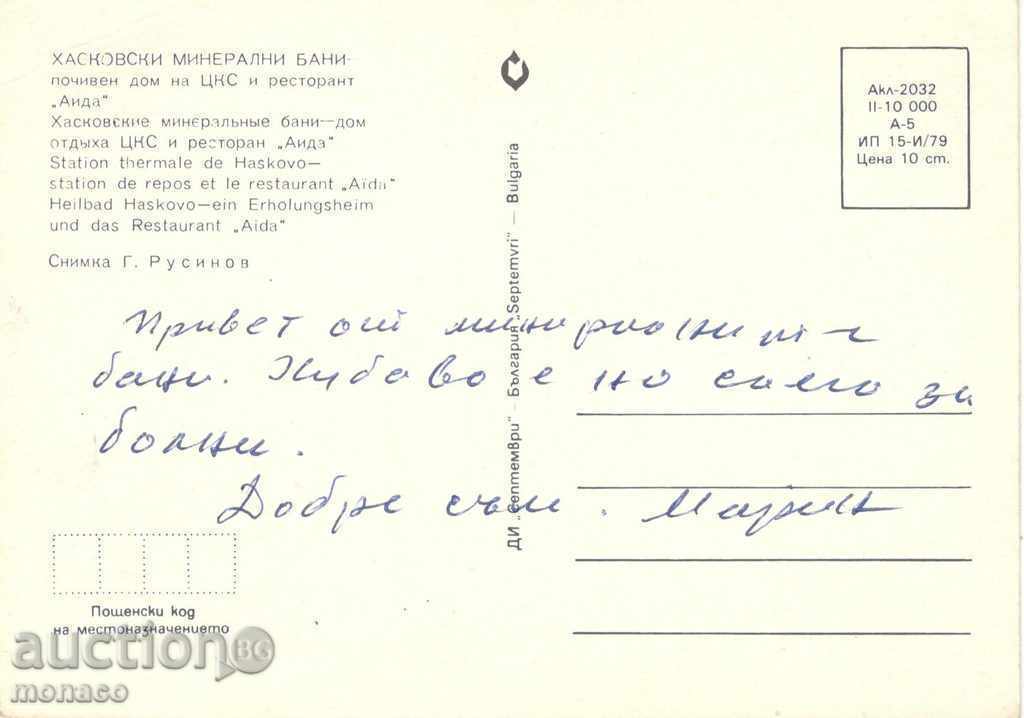 ХАСКОВСКИ МИНЕРАЛНИ БАНИ—
почивен дом на ЦКС и ресторант
„Аида“
Хасковские минеральные бани—дом
отдыха ЦКС и ресторан „Аида“
Station thermale de Haskovo—
station de repos et le restaurant „Aïda“
Heilbad Haskovo—ein Erholungsheim
und das Restaurant „Aida“
Снимка Г. Русинов
Акл-2032
II-10 000
А-5
ИП 15-И/79
Цена 10 ст.
ДИ „Септември“ — България „Septemvri“ — Bulgaria
Привет от минералните
бани. Хубаво е но само за
болни.
Добре съм. Марин
Пощенски код
на местоназначението
auction BG
monaco